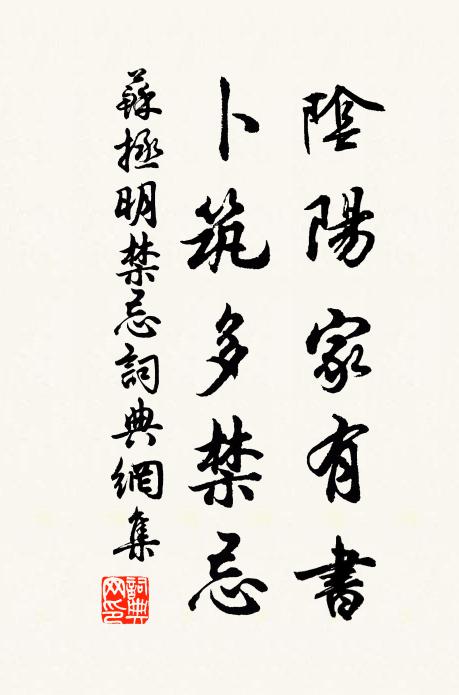 陰陽家有書
卜筑多禁忌
蘇拯明禁忌詞典網集
詞典网印